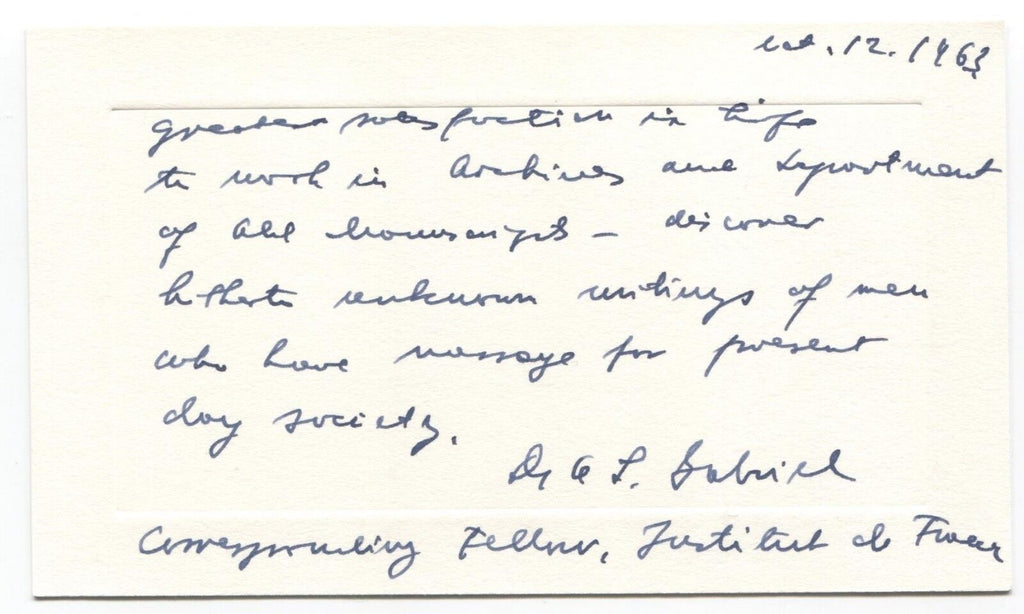 oct. 12. 1963
greatest satisfaction in life
to work in Archives and Department
of old Manuscripts – discover
hitherto unknown writings of men
who have message for present
day society.
Dr A L. Gabriel
Corresponding Fellow, Institut de France